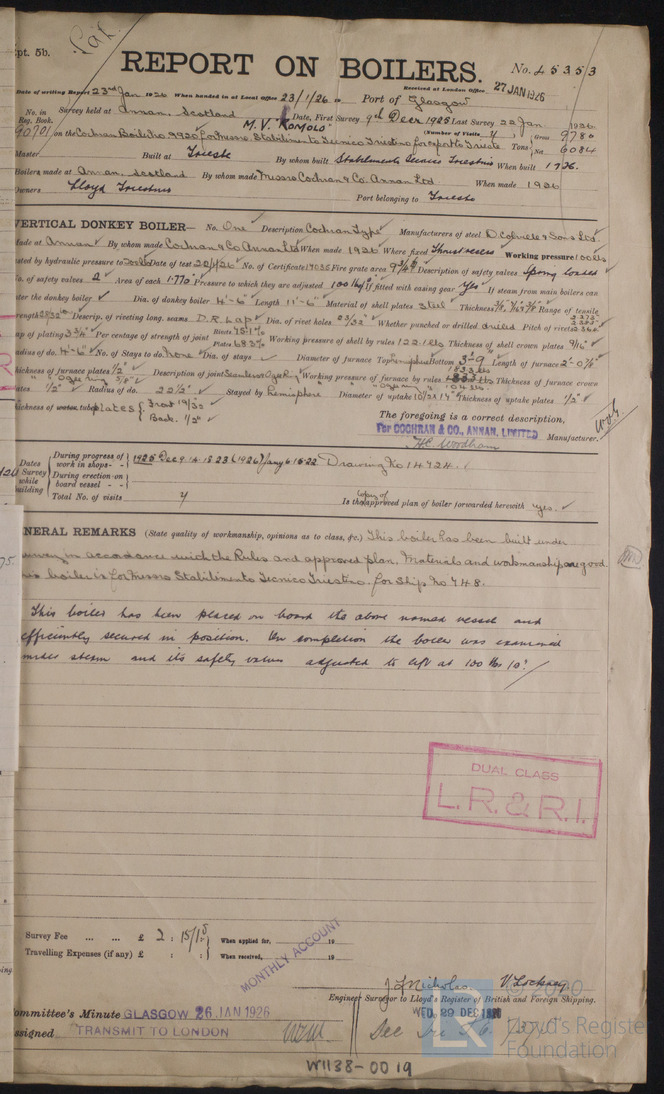 Rpt. 5b.
REPORT ON BOILERS.
No. 45353
Received at London Office 27 JAN 1926
Date of writing Report 23rd Jan 1926 When handed in at Local Office 23/1/26 Port of Glasgow
No. in Reg. Book. Survey held at Annan, Scotland Date, First Survey 9th Decr 1925 Last Survey 22 Jan 1926
(Number of Visits 7)
90701 on the Cochran Boiler No 9920 for Messrs Stabilimento Tecnico Triestino for export to Trieste
M.V. "ROMOLO"
Tons Gross 9780 Net 6084
Master Built at Trieste By whom built Stabilimento Tecnico Triestino When built 1926.
Boilers made at Annan, Scotland By whom made Messrs Cochran & Co. Annan Ltd When made 1926
Owners Lloyd Triestino Port belonging to Trieste
VERTICAL DONKEY BOILER— No. One Description Cochran Type Manufacturers of steel D. Colville & Sons Ltd.
Made at Annan By whom made Cochran & Co Annan Ltd When made 1926 Where fixed Thrust recess Working pressure 100 lbs
tested by hydraulic pressure to 200 lbs Date of test 22/1/26 No. of Certificate 17035 Fire grate area Description of safety valves Spring loaded
No. of safety valves 2 Area of each 1.770 Pressure to which they are adjusted 100 lbs If fitted with easing gear Yes If steam from main boilers can
enter the donkey boiler Dia. of donkey boiler 4'-6" Length 11'-6" Material of shell plates Steel Thickness Range of tensile
strength Descrip. of riveting long. seams D.R. Lap Dia. of rivet holes 23/32" Whether punched or drilled drilled Pitch of rivets
Lap of plating 3 3/4" Per centage of strength of joint Rivets 75.1% Plates 68.5% Working pressure of shell by rules 122 lbs Thickness of shell crown plates 9/16"
Radius of do. 4'-6" No. of Stays to do. None Dia. of stays Diameter of furnace Top Hemisphere Bottom 3'-9" Length of furnace 2'-0 7/8"
Thickness of furnace plates 1/2" Description of joint Seamless Working pressure of furnace by rules Thickness of furnace crown
plates 1/2" Radius of do. 22 1/2" Stayed by Hemisphere Diameter of uptake 10 1/2 x 14" Thickness of uptake plates 1/2"
Thickness of tube plates Front 19/32 Back 1/2"
The foregoing is a correct description,
For COCHRAN & CO., ANNAN, LIMITED
H.C. Woodham Manufacturer.
Dates of Survey while building
During progress of work in shops - - 1925 Dec 9. 14. 18. 23 (1926) Jany 6. 15. 22 Drawing No 14724.
During erection on board vessel - -
Total No. of visits 7
Is the copy of approved plan of boiler forwarded herewith yes.
GENERAL REMARKS (State quality of workmanship, opinions as to class, &c.) This boiler has been built under
survey in accordance with the Rules and approved plan. Materials and workmanship are good.
This boiler is for Messrs Stabilimento Tecnico Triestino, for Ship No 748.
This boiler has been placed on board the above named vessel and
efficiently secured in position. On completion the boiler was examined
under steam and its safety valves adjusted to lift at 100 lbs
DUAL CLASS
L.R. & R.I.
Survey Fee ... ... £ 2 : 15/15 When applied for, 19
Travelling Expenses (if any) £ : : When received, 19
MONTHLY ACCOUNT
J. Nicholson V. Locksey
Engineer Surveyor to Lloyd's Register of British and Foreign Shipping.
Committee's Minute GLASGOW 26 JAN 1926
WED. 29 DEC 1926
Assigned TRANSMIT TO LONDON
© 2020
Lloyd's Register
Foundation
W1138-0019